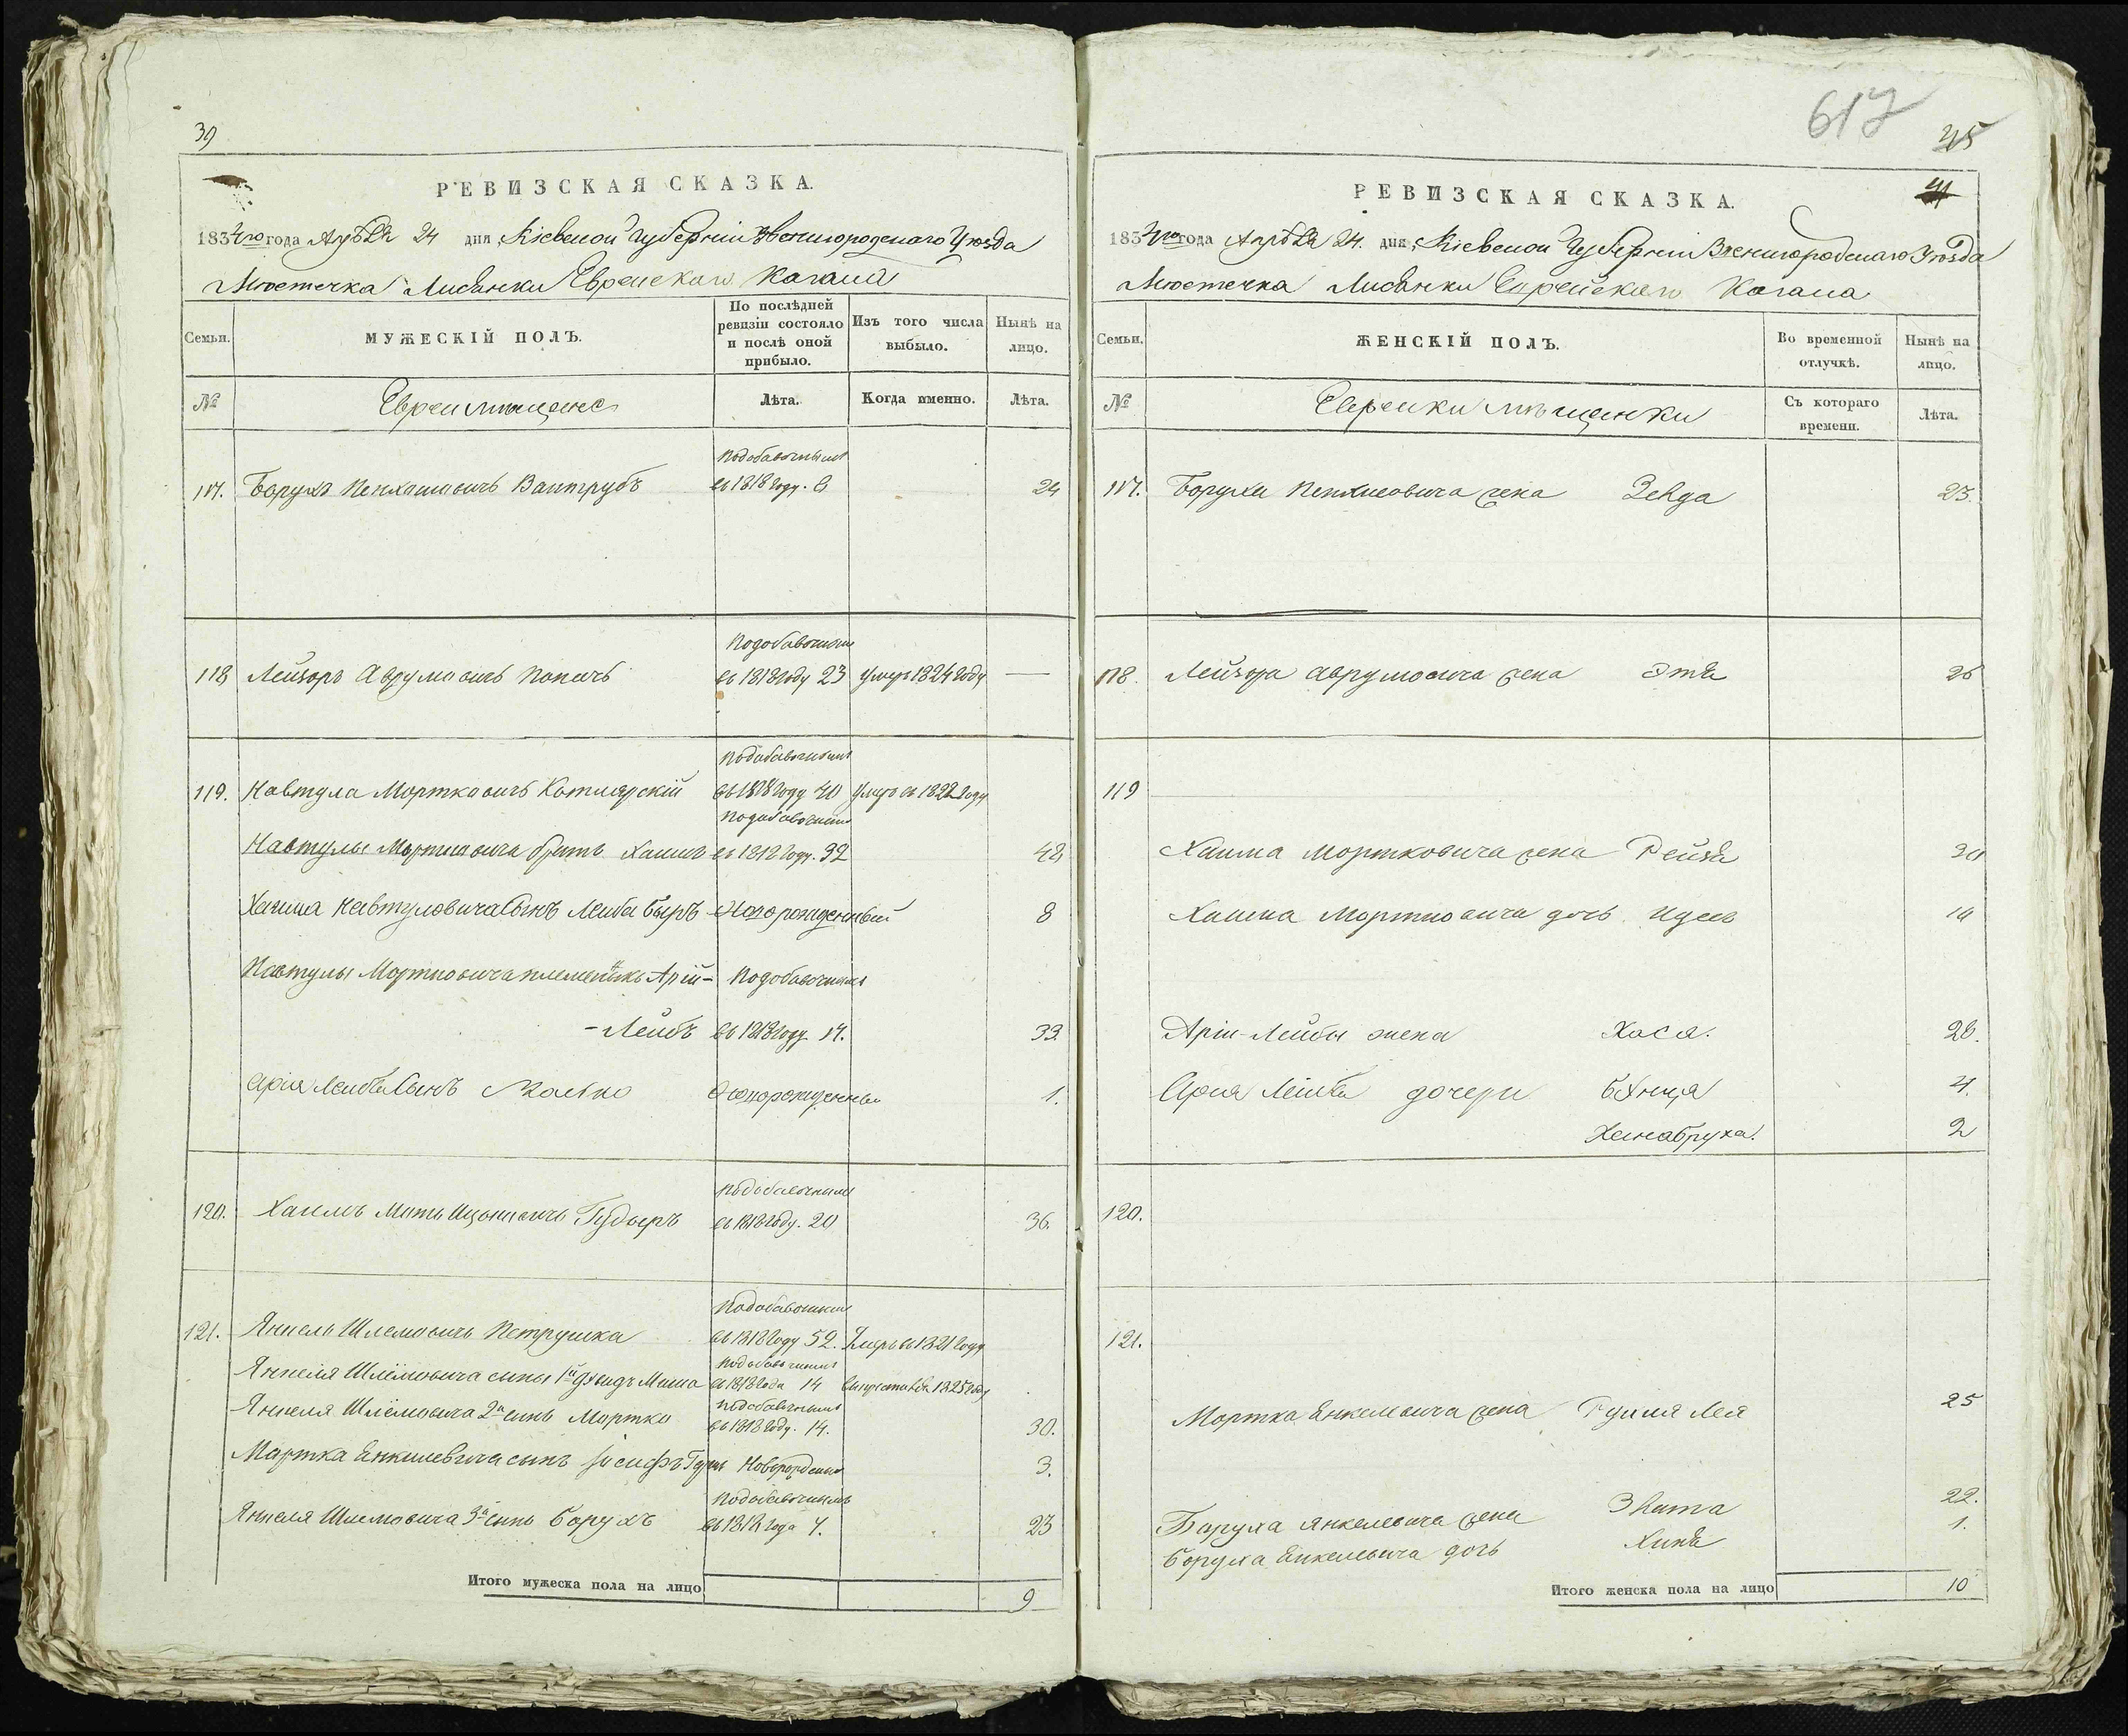 39
РЕВИЗСКАЯ СКАЗКА.
1834го года Апреля 24 дня, Кіевской Губерніи Звенигородскаго Уѣзда
Мѣстечка Лисянки Еврейскаго Кагала
Семьи.
МУЖЕСКІЙ ПОЛЪ.
По послѣдней ревизіи состояло и послѣ оной прибыло.
Изъ того числа выбыло.
Нынѣ на лицо.
№
Евреи мѣщане
Лѣта.
Когда именно.
Лѣта.
Подобавочнымъ
117. Борухъ Пенхасовичъ Вайтрубъ въ 1818 году. 8 24
Подобавочнымъ
118 Лейзоръ Аврумовичъ Копичъ въ 1818 году 23 умеръ 1824 году —
Подобавочнымъ
119. Навтула Мортковичъ Котлярскій въ 1818 году 40 умеръ въ 1822 году
Подобавочнымъ
Навтулы Мортковича братъ Хаимъ въ 1818 году. 32 48
Хаима Навтуловича сынъ Лейба Беръ Новорожденный 8
Навтулы Мортковича племянникъ Арій- Подобавочнымъ
-Лейбъ въ 1818 году 17. 33.
Арія Лейба сынъ Новорожденный 1.
Подобавочнымъ
120. Хаимъ Мать Ицковичъ въ 1818 году. 20 36.
Подобавочнымъ
121. Янкель Шлемовичъ Петрушка въ 1818 году 52. Умеръ въ 1821 году
Подобавочнымъ
Янкеля Шлёмовича сыны 1й въ 1818 года 14 1825 году
Подобавочнымъ
Янкеля Шлёмовича 2й сынъ Мортко въ 1818 году. 14. 30.
Мортка Енкилевича сынъ Іосифъ Новорожденный 3.
Подобавочнымъ
Янкеля Шлемовича 3й сынъ Борухъ въ 1818 года 7. 23
Итого мужеска пола на лицо 9
617
45
41
РЕВИЗСКАЯ СКАЗКА.
1834го года Апреля 24. дня, Кіевской Губерніи Звенигородскаго Уѣзда
Мѣстечка Лисянки Еврейскаго Кагала
Семьи.
ЖЕНСКІЙ ПОЛЪ.
Во временной отлучкѣ.
Нынѣ на лицо.
№
Еврейки мѣщанки
Съ котораго времени.
Лѣта.
117. Боруха Пенхисовича жена 23.
118. Лейзора Аврумовича жена Этя 26
119
Хаима Мортковича жена Рейзя 30
Хаима Мортковича дочь Идес 14
Арія-Лейбы жена Хася. 26.
Арія Лейба дочери Бунця 4.
Хенабруха. 2
120.
121.
Мортка Енкелевича жена Лея 25
Боруха Янкелевича жена Злата 22.
Боруха Енкелевича дочь Хиня 1.
Итого женска пола на лицо 10